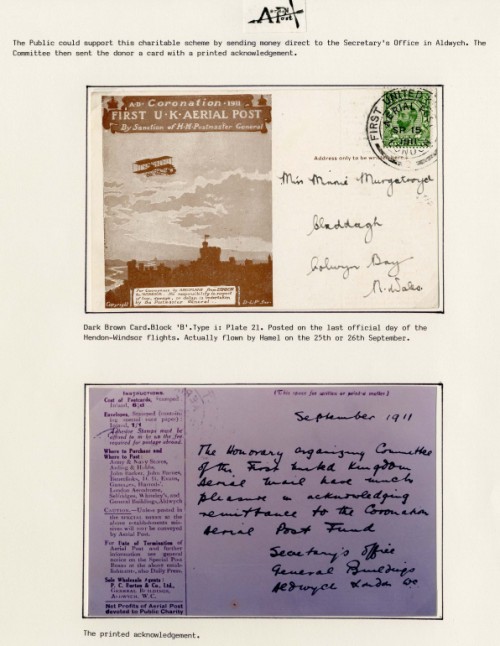 Aerial
A Post
The Public could support this charitable scheme by sending money direct to the Secretary's Office in Aldwych. The
Committee then sent the donor a card with a printed acknowledgement.
A·D· Coronation ·1911
FIRST U·K·AERIAL POST
By Sanction of H·M·Postmaster General
FIRST UNITED
AERIAL
SP 15
1911
LONDON
Address only to be written here.
Miss Minnie Murgatroyd
Claddagh
Colwyn Bay
N. Wales
For Conveyance by AEROPLANE from LONDON
to WINDSOR. No responsibility in respect
of loss, damage, or delay is undertaken
by the Postmaster General
Copyright
Dark Brown Card.Block 'B'.Type i: Plate 21. Posted on the last official day of the
Hendon-Windsor flights. Actually flown by Hamel on the 25th or 26th September.
INSTRUCTIONS.
Cost of Postcards, Stamped,
Inland,
Envelopes, Stamped (contain-
ing special note paper):
Inland,
Adhesive Stamps must be
affixed to make up the fee
required for postage abroad.
Where to Purchase and
Where to Post
Army & Navy Stores,
John Barker, John Barnes,
Benetfinks,
Gamages, Harrods',
London Aerodrome,
Selfridges, Whiteley's, and
General Buildings, Aldwych
CAUTION.—Unless posted in
the special boxes at the
above establishments mis-
sives will not be conveyed
by Aerial Post.
For Date of Termination of
Aerial Post and further
information see general
notice on the Special Post
Boxes in the above estab-
lishments, also Daily Press.
Sole Wholesale Agents:
GENERAL BUILDINGS,
ALDWYCH, W.C.
Net Profits of Aerial Post
devoted to Public Charity
(This space for written or printed matter.)
September 1911
The Honorary Organizing Committee
of the First United Kingdom
Aerial Mail have much
pleasure in acknowledging
remittance to the Coronation
Aerial Post Fund
Secretary's office
General Buildings
Aldwych London WC
The printed acknowledgement.